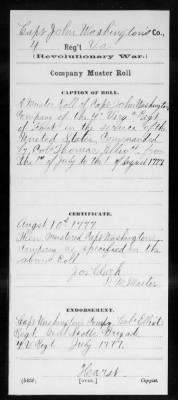 Capt John Washington's Co.,
4 Reg't Va
(Revolutionary War.)
Company Muster Roll
CAPTION OF ROLL.
A Muster Roll of Capt John Washington
Company of the 4th Virg Regt
of Foot in the service of the
United States, Commanded
by Colo Thomas Elliott from
the 1st of July to the 1 of August 1777
CERTIFICATE.
Augst 10th 1777
Then Mustered Capt Washingtons
Company as specified in the
above Roll
Jos Clark
D M Master
ENDORSEMENT.
Capt Washingtons Compy Colo Elliot
Regt Brigade
4 V Regt July 1777.
Hearst
(545c) [OVER.] Copyist.